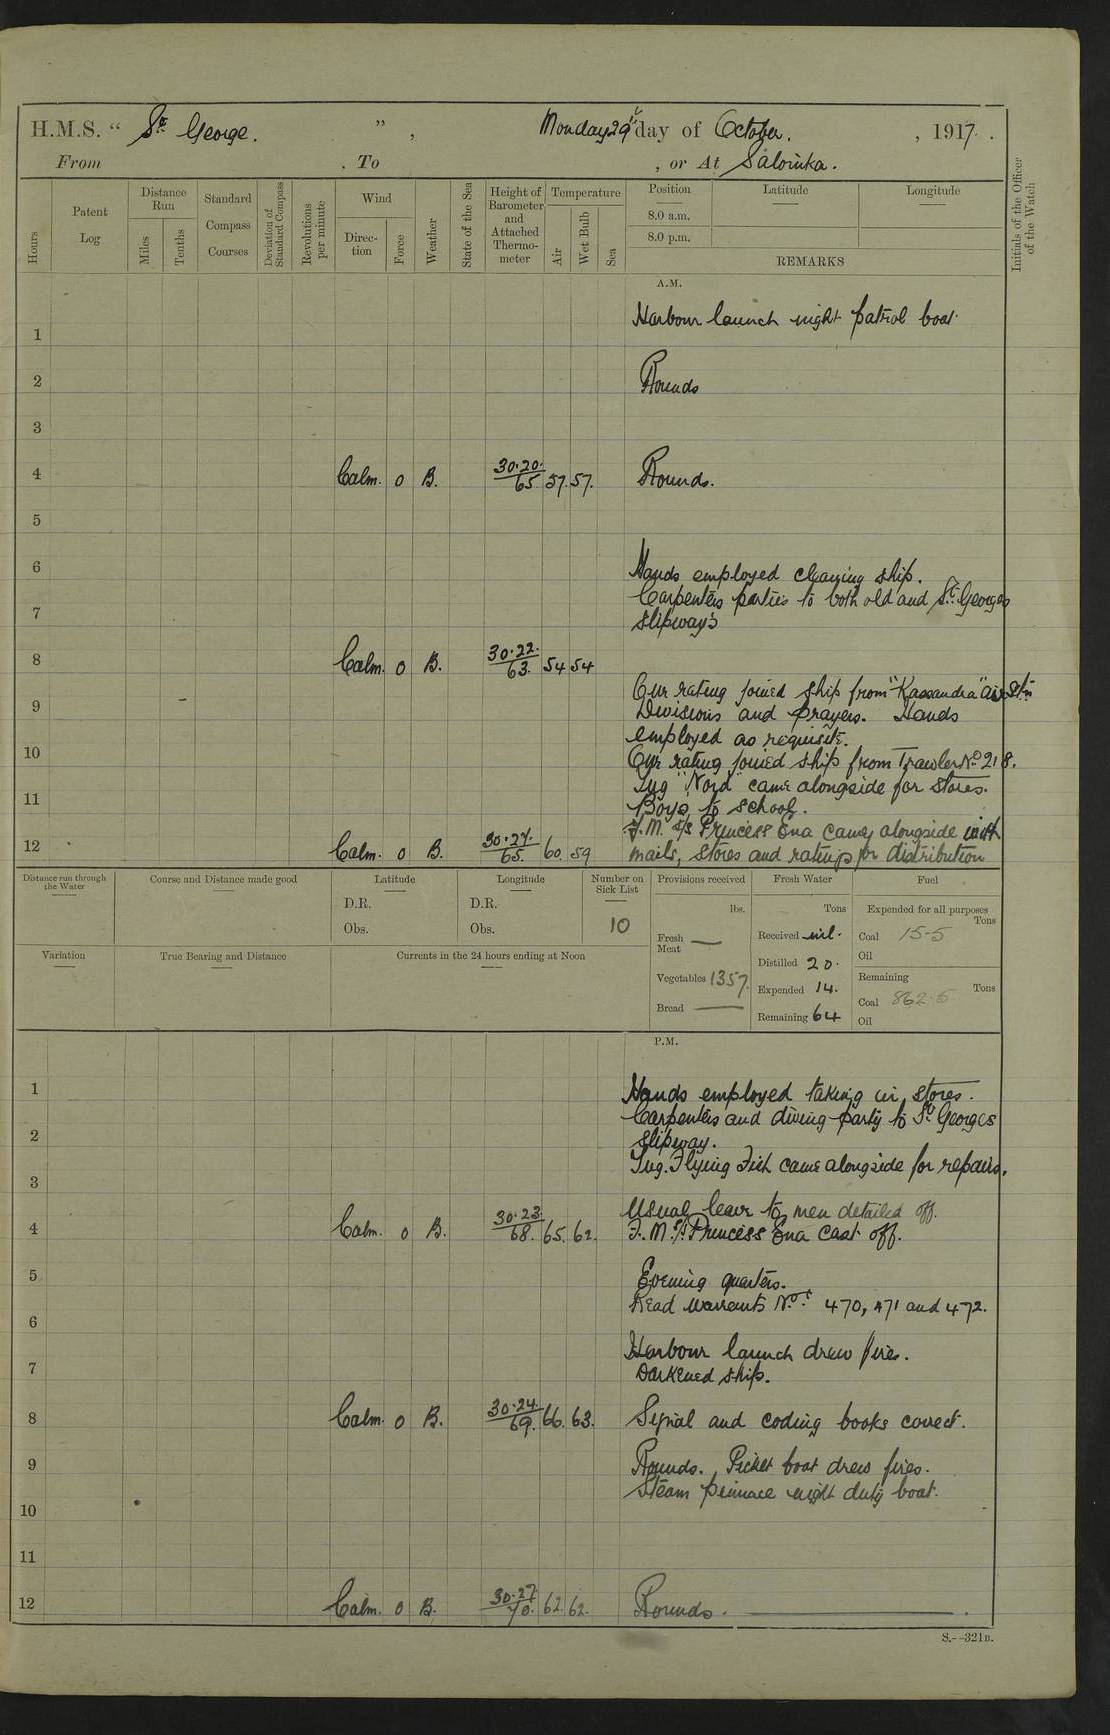 H.M.S. " St George. " , Monday 29th day of October. , 1917.
From . To , or At Salonika.
Hours
Patent Log
Distance Run
Miles
Tenths
Standard Compass Courses
Deviation of Standard Compass
Revolutions per minute
Wind
Direction
Force
Weather
State of the Sea
Height of Barometer and Attached Thermometer
Temperature
Air
Wet Bulb
Sea
Position Latitude Longitude
8.0 a.m.
8.0 p.m.
REMARKS
Initials of the Officer of the Watch
A.M.
1 Harbour launch night patrol boat.
2 Rounds
3
4 Calm. 0 B. 30.20. 65 57. 57. Rounds.
5
6 Hands employed cleaning ship.
7 Carpenters parties to both old and St. Georges
slipways
8 Calm. 0 B. 30.22. 63. 54 54
Our rating joined ship from "Kassandra" air Stn
9 Divisions and prayers. Hands
employed as requisite.
10 Our rating joined ship from Trawler No 218.
Tug "Nord" came alongside for stores.
11 Boys to school.
F.M. s/s Princess Ena came alongside with
12 Calm. 0 B. 30.27. 65. 60. 59 mails, stores and ratings for distribution
Distance run through the Water
Course and Distance made good
Latitude
D.R.
Obs.
Longitude
D.R.
Obs.
Number on Sick List
10
Provisions received
lbs.
Fresh Meat —
Vegetables 1357.
Bread —
Fresh Water
Tons
Received nil.
Distilled 20.
Expended 14.
Remaining 64
Fuel
Expended for all purposes
Tons
Coal 15.5
Oil
Remaining
Tons
Coal 862.5
Oil
Variation
True Bearing and Distance
Currents in the 24 hours ending at Noon
P.M.
1 Hands employed taking in stores.
Carpenters and diving party to St. Georges
2 slipway.
Tug. Flying Fish came alongside for repairs.
3
Usual leave to men detailed off.
4 Calm. 0 B. 30.23. 68. 65. 62. F. M. s/s Princess Ena cast off.
5 Evening quarters.
Read warrants Nos. 470, 471 and 472.
6
Harbour launch drew fires.
7 Darkened ship.
8 Calm. 0 B. 30.24. 69. 66. 63. Signal and coding books correct.
9 Rounds. Picket boat drew fires.
Steam pinnace night duty boat.
10
11
12 Calm. 0 B. 30.27. 70. 62. 62. Rounds.
S.—321B.